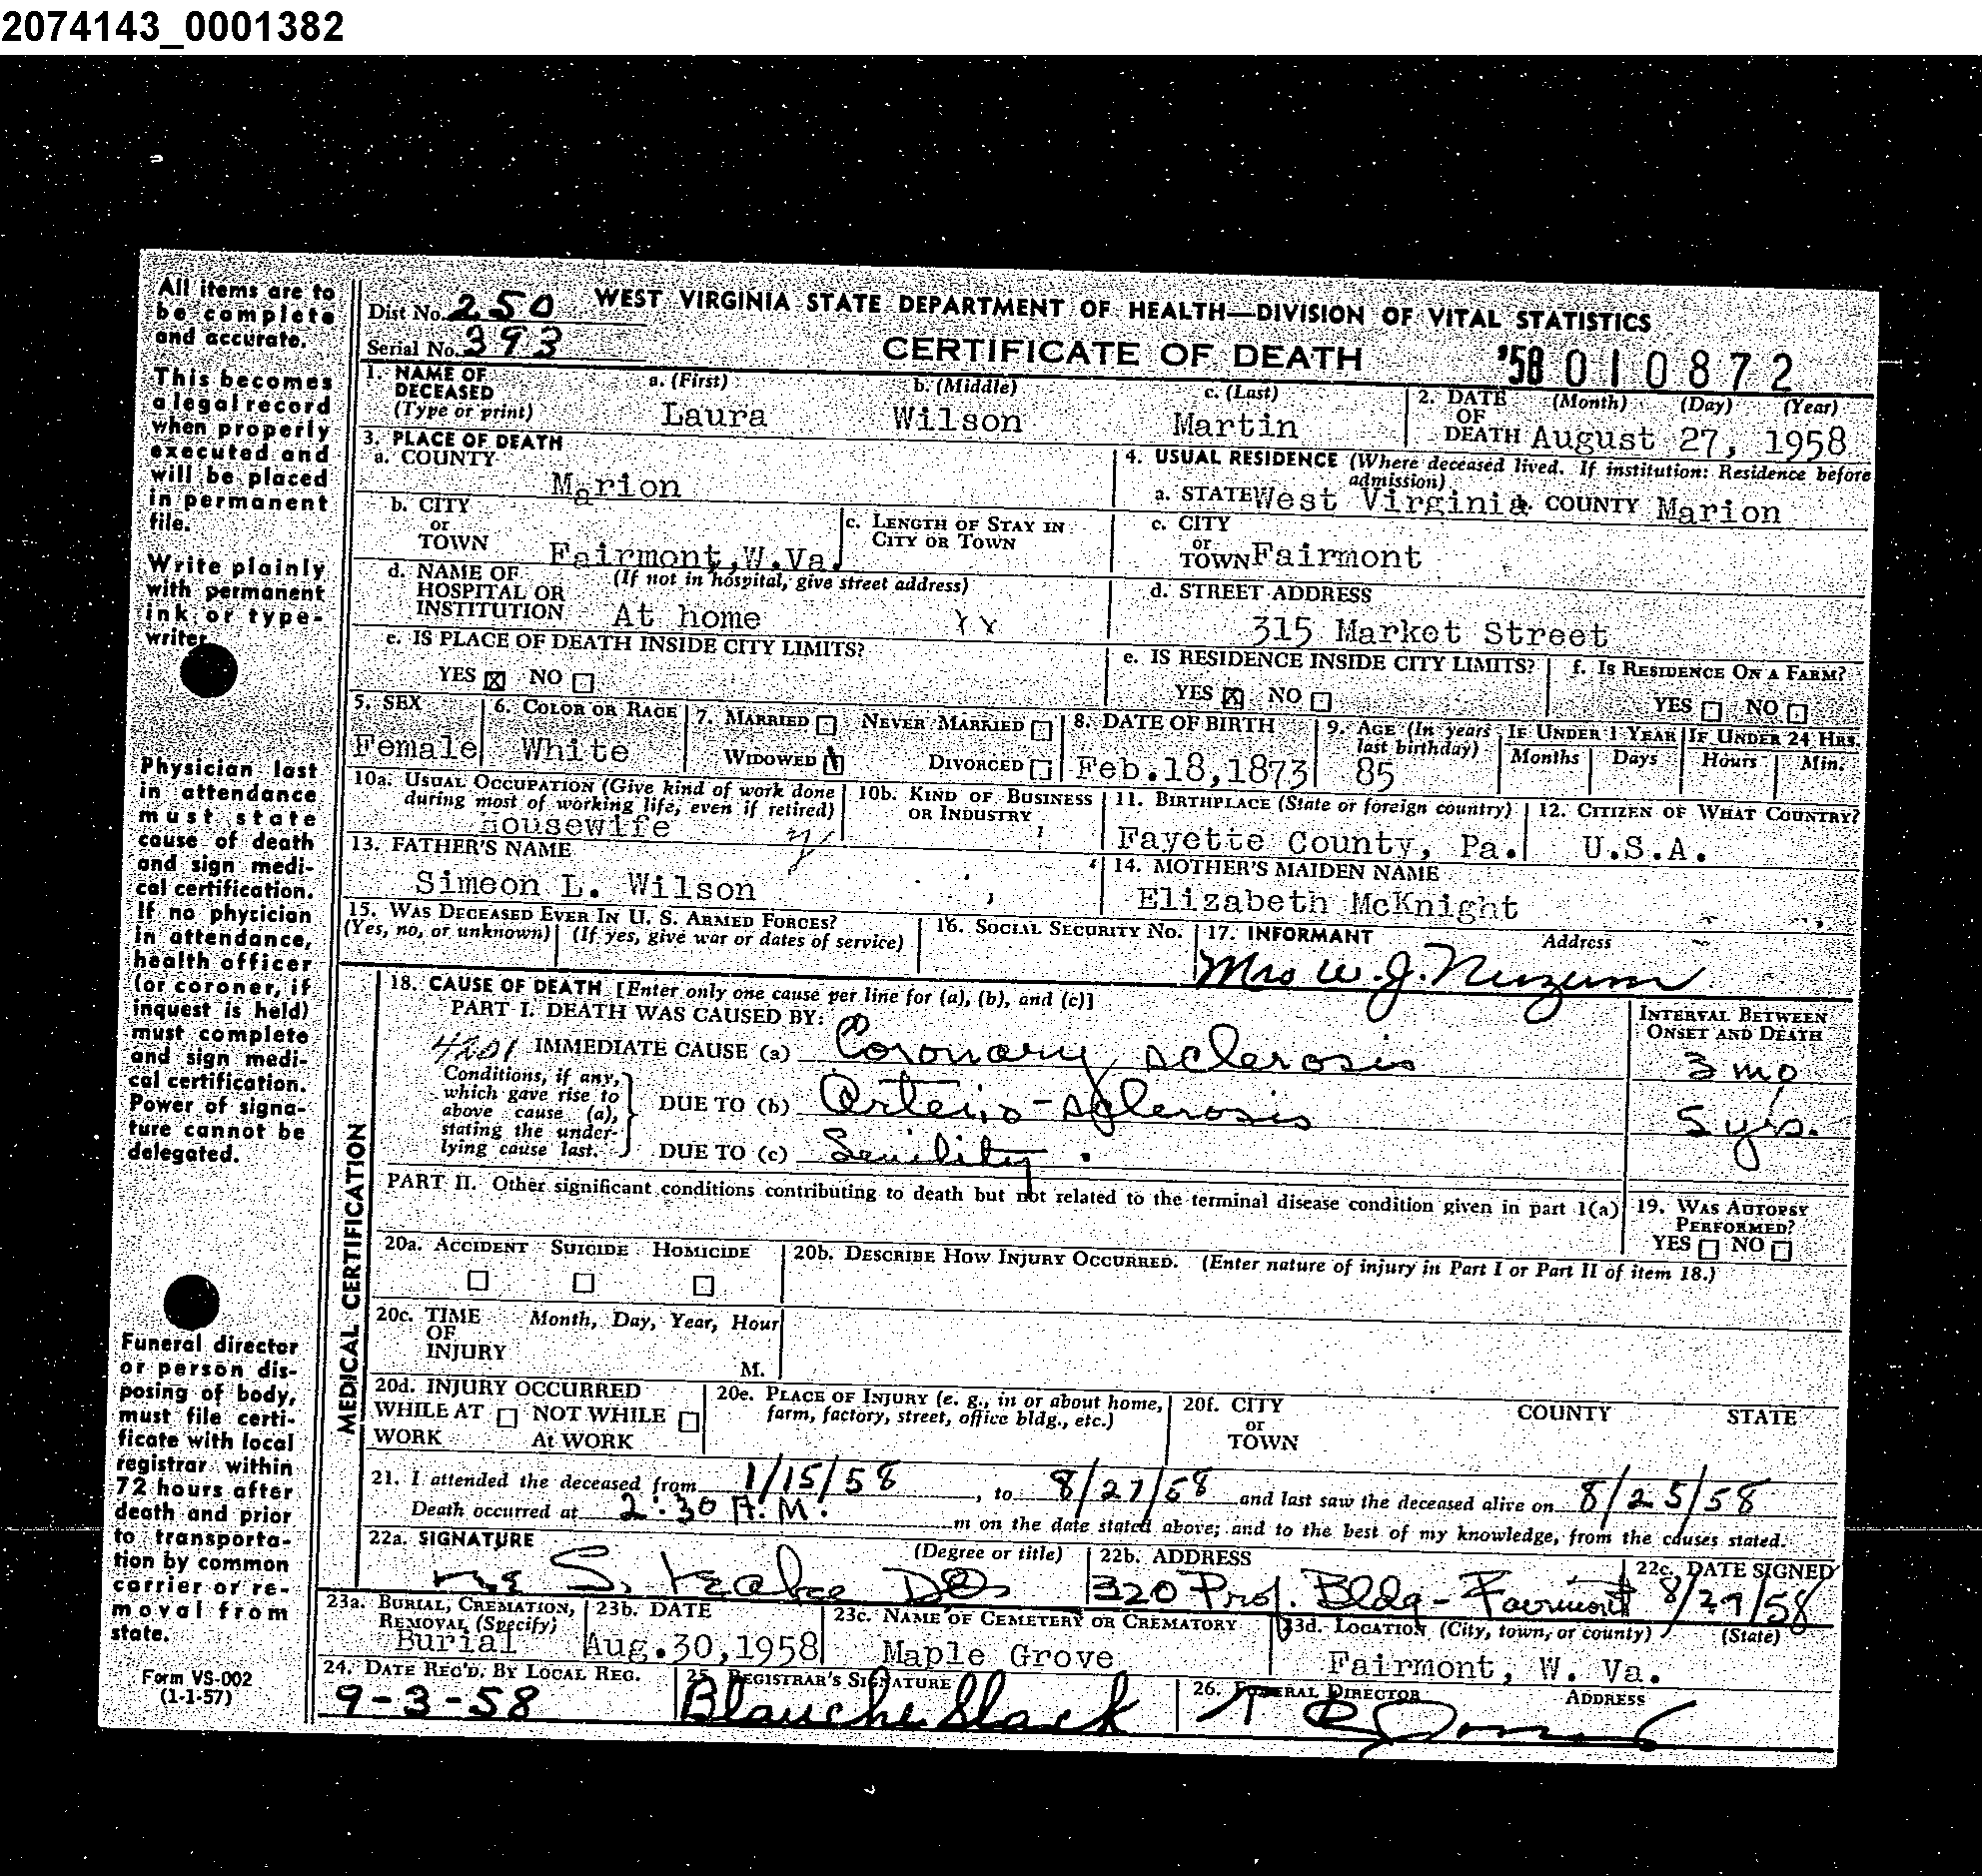 2074143_0001382
All items are to
be complete
and accurate.
This becomes
a legal record
when properly
executed and
will be placed
in permanent
file.
Write plainly
with permanent
ink or type-
writer.
Physician last
in attendance
must state
cause of death
and sign medi-
cal certification.
If no physician
in attendance,
health officer
(or coroner, if
inquest is held)
must complete
and sign medi-
cal certification.
Power of signa-
ture cannot be
delegated.
Funeral director
or person dis-
posing of body,
must file certi-
ficate with local
registrar within
72 hours after
death and prior
to transporta-
tion by common
carrier or re-
moval from
state.
Form VS-002
(1-1-57)
Dist No. 250 WEST VIRGINIA STATE DEPARTMENT OF HEALTH—DIVISION OF VITAL STATISTICS
Serial No. 393 CERTIFICATE OF DEATH '58 010872
1. NAME OF DECEASED (Type or print) a. (First) b. (Middle) c. (Last) 2. DATE OF DEATH (Month) (Day) (Year)
Laura Wilson Martin August 27, 1958
3. PLACE OF DEATH
a. COUNTY Marion
4. USUAL RESIDENCE (Where deceased lived. If institution: Residence before admission)
a. STATE West Virginia b. COUNTY Marion
b. CITY or TOWN Fairmont, W.Va. c. LENGTH OF STAY IN CITY OR TOWN
c. CITY or TOWN Fairmont
d. NAME OF HOSPITAL OR INSTITUTION (If not in hospital, give street address) At home
d. STREET ADDRESS 315 Market Street
e. IS PLACE OF DEATH INSIDE CITY LIMITS? YES NO
e. IS RESIDENCE INSIDE CITY LIMITS? YES NO
f. IS RESIDENCE ON A FARM? YES NO
5. SEX Female
6. COLOR OR RACE White
7. MARRIED NEVER MARRIED WIDOWED DIVORCED
8. DATE OF BIRTH Feb.18,1873
9. AGE (In years last birthday) 85 IF UNDER 1 YEAR Months Days IF UNDER 24 HRS. Hours Min.
10a. USUAL OCCUPATION (Give kind of work done during most of working life, even if retired) Housewife
10b. KIND OF BUSINESS OR INDUSTRY
11. BIRTHPLACE (State or foreign country) Fayette County, Pa.
12. CITIZEN OF WHAT COUNTRY? U.S.A.
13. FATHER'S NAME Simeon L. Wilson
14. MOTHER'S MAIDEN NAME Elizabeth McKnight
15. WAS DECEASED EVER IN U. S. ARMED FORCES? (Yes, no, or unknown) (If yes, give war or dates of service)
16. SOCIAL SECURITY NO.
17. INFORMANT Address
Mrs W. J. Nuzum
MEDICAL CERTIFICATION
18. CAUSE OF DEATH [Enter only one cause per line for (a), (b), and (c)]
PART I. DEATH WAS CAUSED BY: INTERVAL BETWEEN ONSET AND DEATH
4201 IMMEDIATE CAUSE (a) Coronary sclerosis 3 mo
Conditions, if any, which gave rise to above cause (a), stating the under-lying cause last.
DUE TO (b) Arterio-sclerosis 5 yrs.
DUE TO (c) Senility.
PART II. Other significant conditions contributing to death but not related to the terminal disease condition given in part I(a)
19. WAS AUTOPSY PERFORMED? YES NO
20a. ACCIDENT SUICIDE HOMICIDE
20b. DESCRIBE HOW INJURY OCCURRED. (Enter nature of injury in Part I or Part II of item 18.)
20c. TIME OF INJURY Month, Day, Year, Hour M.
20d. INJURY OCCURRED WHILE AT WORK NOT WHILE At WORK
20e. PLACE OF INJURY (e. g., in or about home, farm, factory, street, office bldg., etc.)
20f. CITY or TOWN COUNTY STATE
21. I attended the deceased from 1/15/58, to 8/27/58 and last saw the deceased alive on 8/25/58
Death occurred at 2:30 A.M. m on the date stated above; and to the best of my knowledge, from the causes stated.
22a. SIGNATURE (Degree or title)
22b. ADDRESS 320 Prof. Bldg - Fairmont
22c. DATE SIGNED 8/29/58
23a. BURIAL, CREMATION, REMOVAL (Specify) Burial
23b. DATE Aug.30,1958
23c. NAME OF CEMETERY OR CREMATORY Maple Grove
23d. LOCATION (City, town, or county) (State) Fairmont, W. Va.
24. DATE REC'D. BY LOCAL REG. 9-3-58
25. REGISTRAR'S SIGNATURE Blanche Slack
26. FUNERAL DIRECTOR ADDRESS